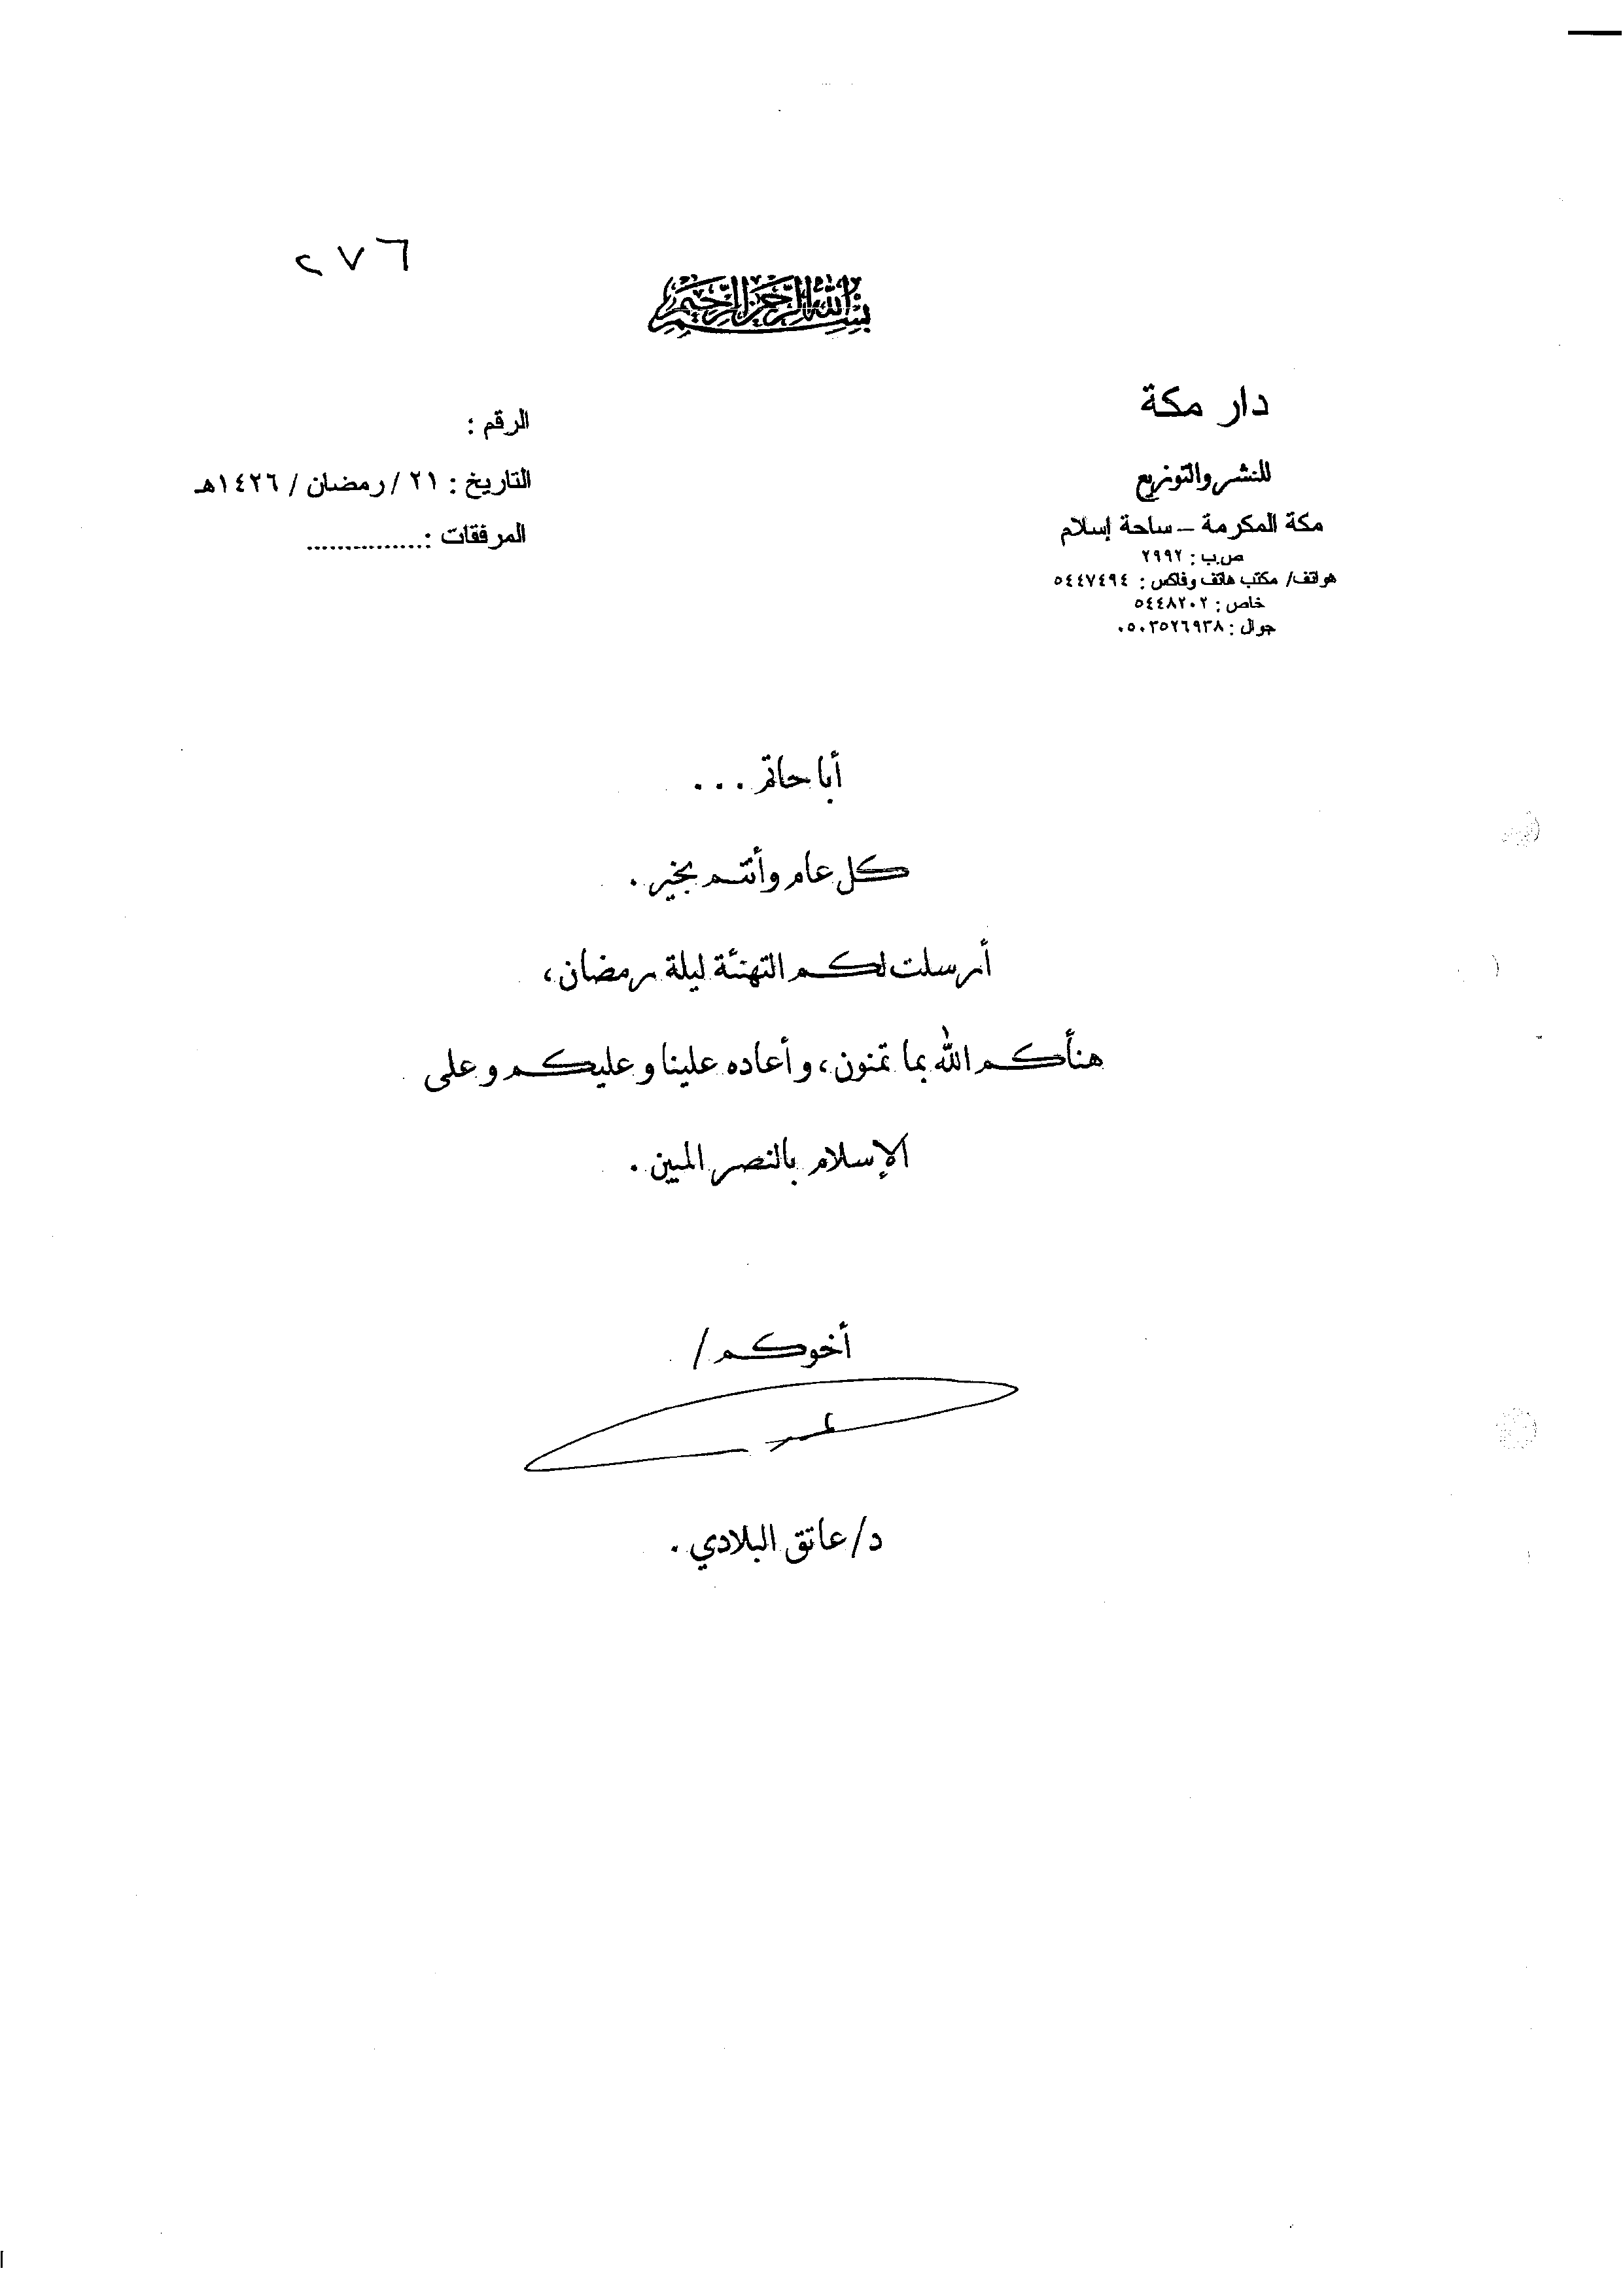 ٢٧٦
بسم الله الرحمن الرحيم
دار مكة
للنشر والتوزيع
مكة المكرمة – ساحة إسلام
ص.ب : ٢٩٩٢
هواتف/ مكتب هاتف وفاكس : ٥٤٤٧٤٩٤
خاص : ٥٤٤٨٢٠٢
جوال : ٠٥٠٣٥٢٦٩٣٨
الرقم :
التاريخ : ٢١ /رمضان / ١٤٢٦هـ
المرفقات :...............
أبا حاتم . . .
كل عام وأنتم بخير .
أرسلت لكم التهنئة ليلة رمضان،
هنأكم الله بما تمنون، وأعاده علينا وعليكم وعلى
الإسلام بالنصر المبين .
أخوكم /
د/ عاتق البلادي .